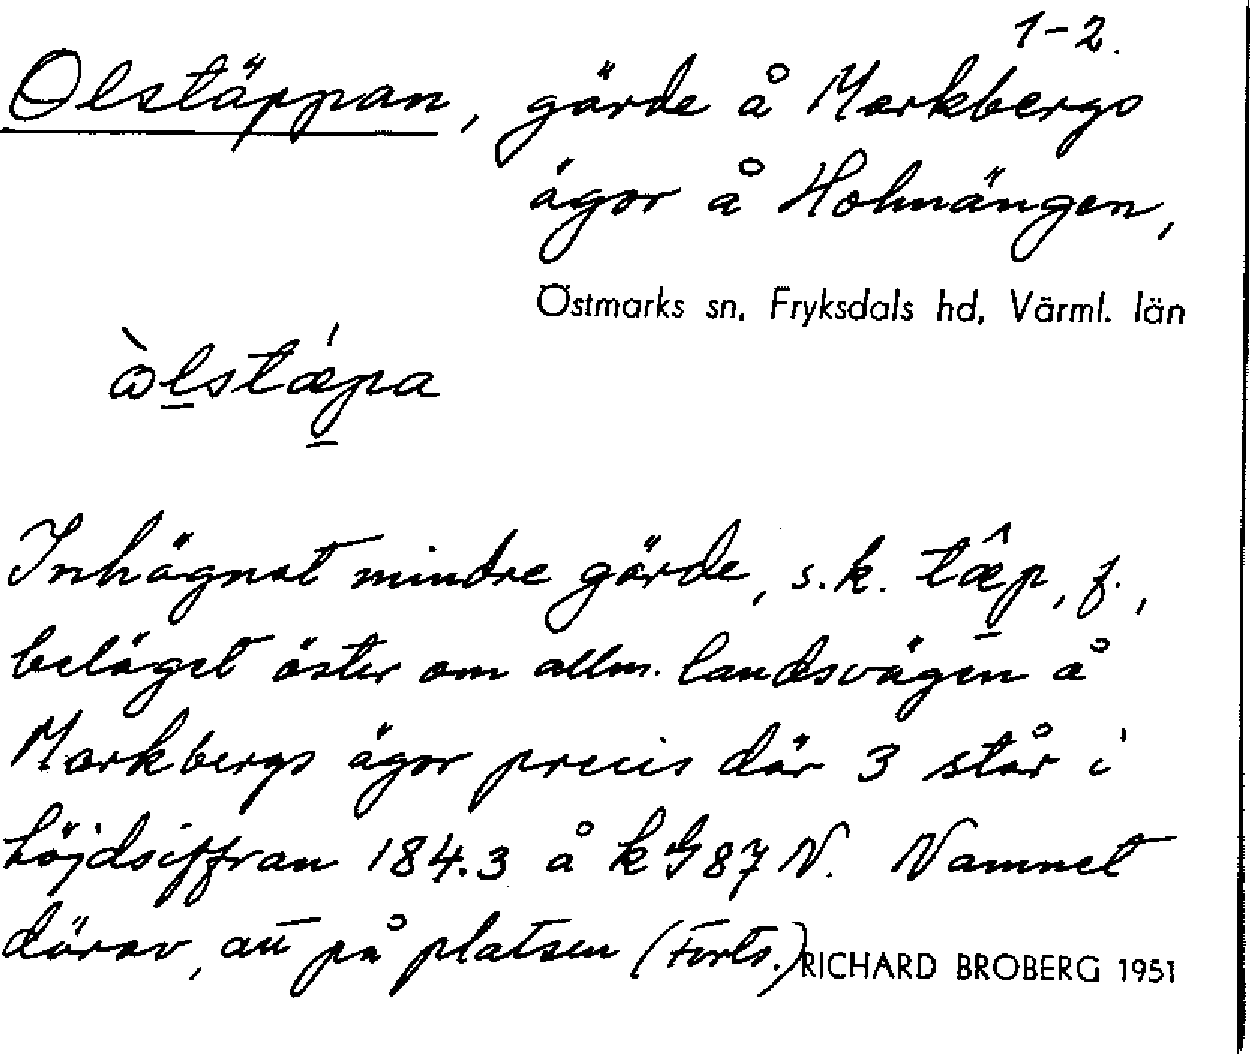 1-2.
Olstäppan, gärde å Markbergs
ägor å Holmängen,
Östmarks sn, Fryksdals hd, Värml. län
ὼlstǽpa
Inhägnat mindre gärde, s.k. tæ̂p, f.,
beläget öster om allm. landsvägen å
Markbergs ägor precis där 3 står i
höjdsiffran 184.3 å kG87 N. Namnet
därav, att på platsen (Forts.)
RICHARD BROBERG 1951